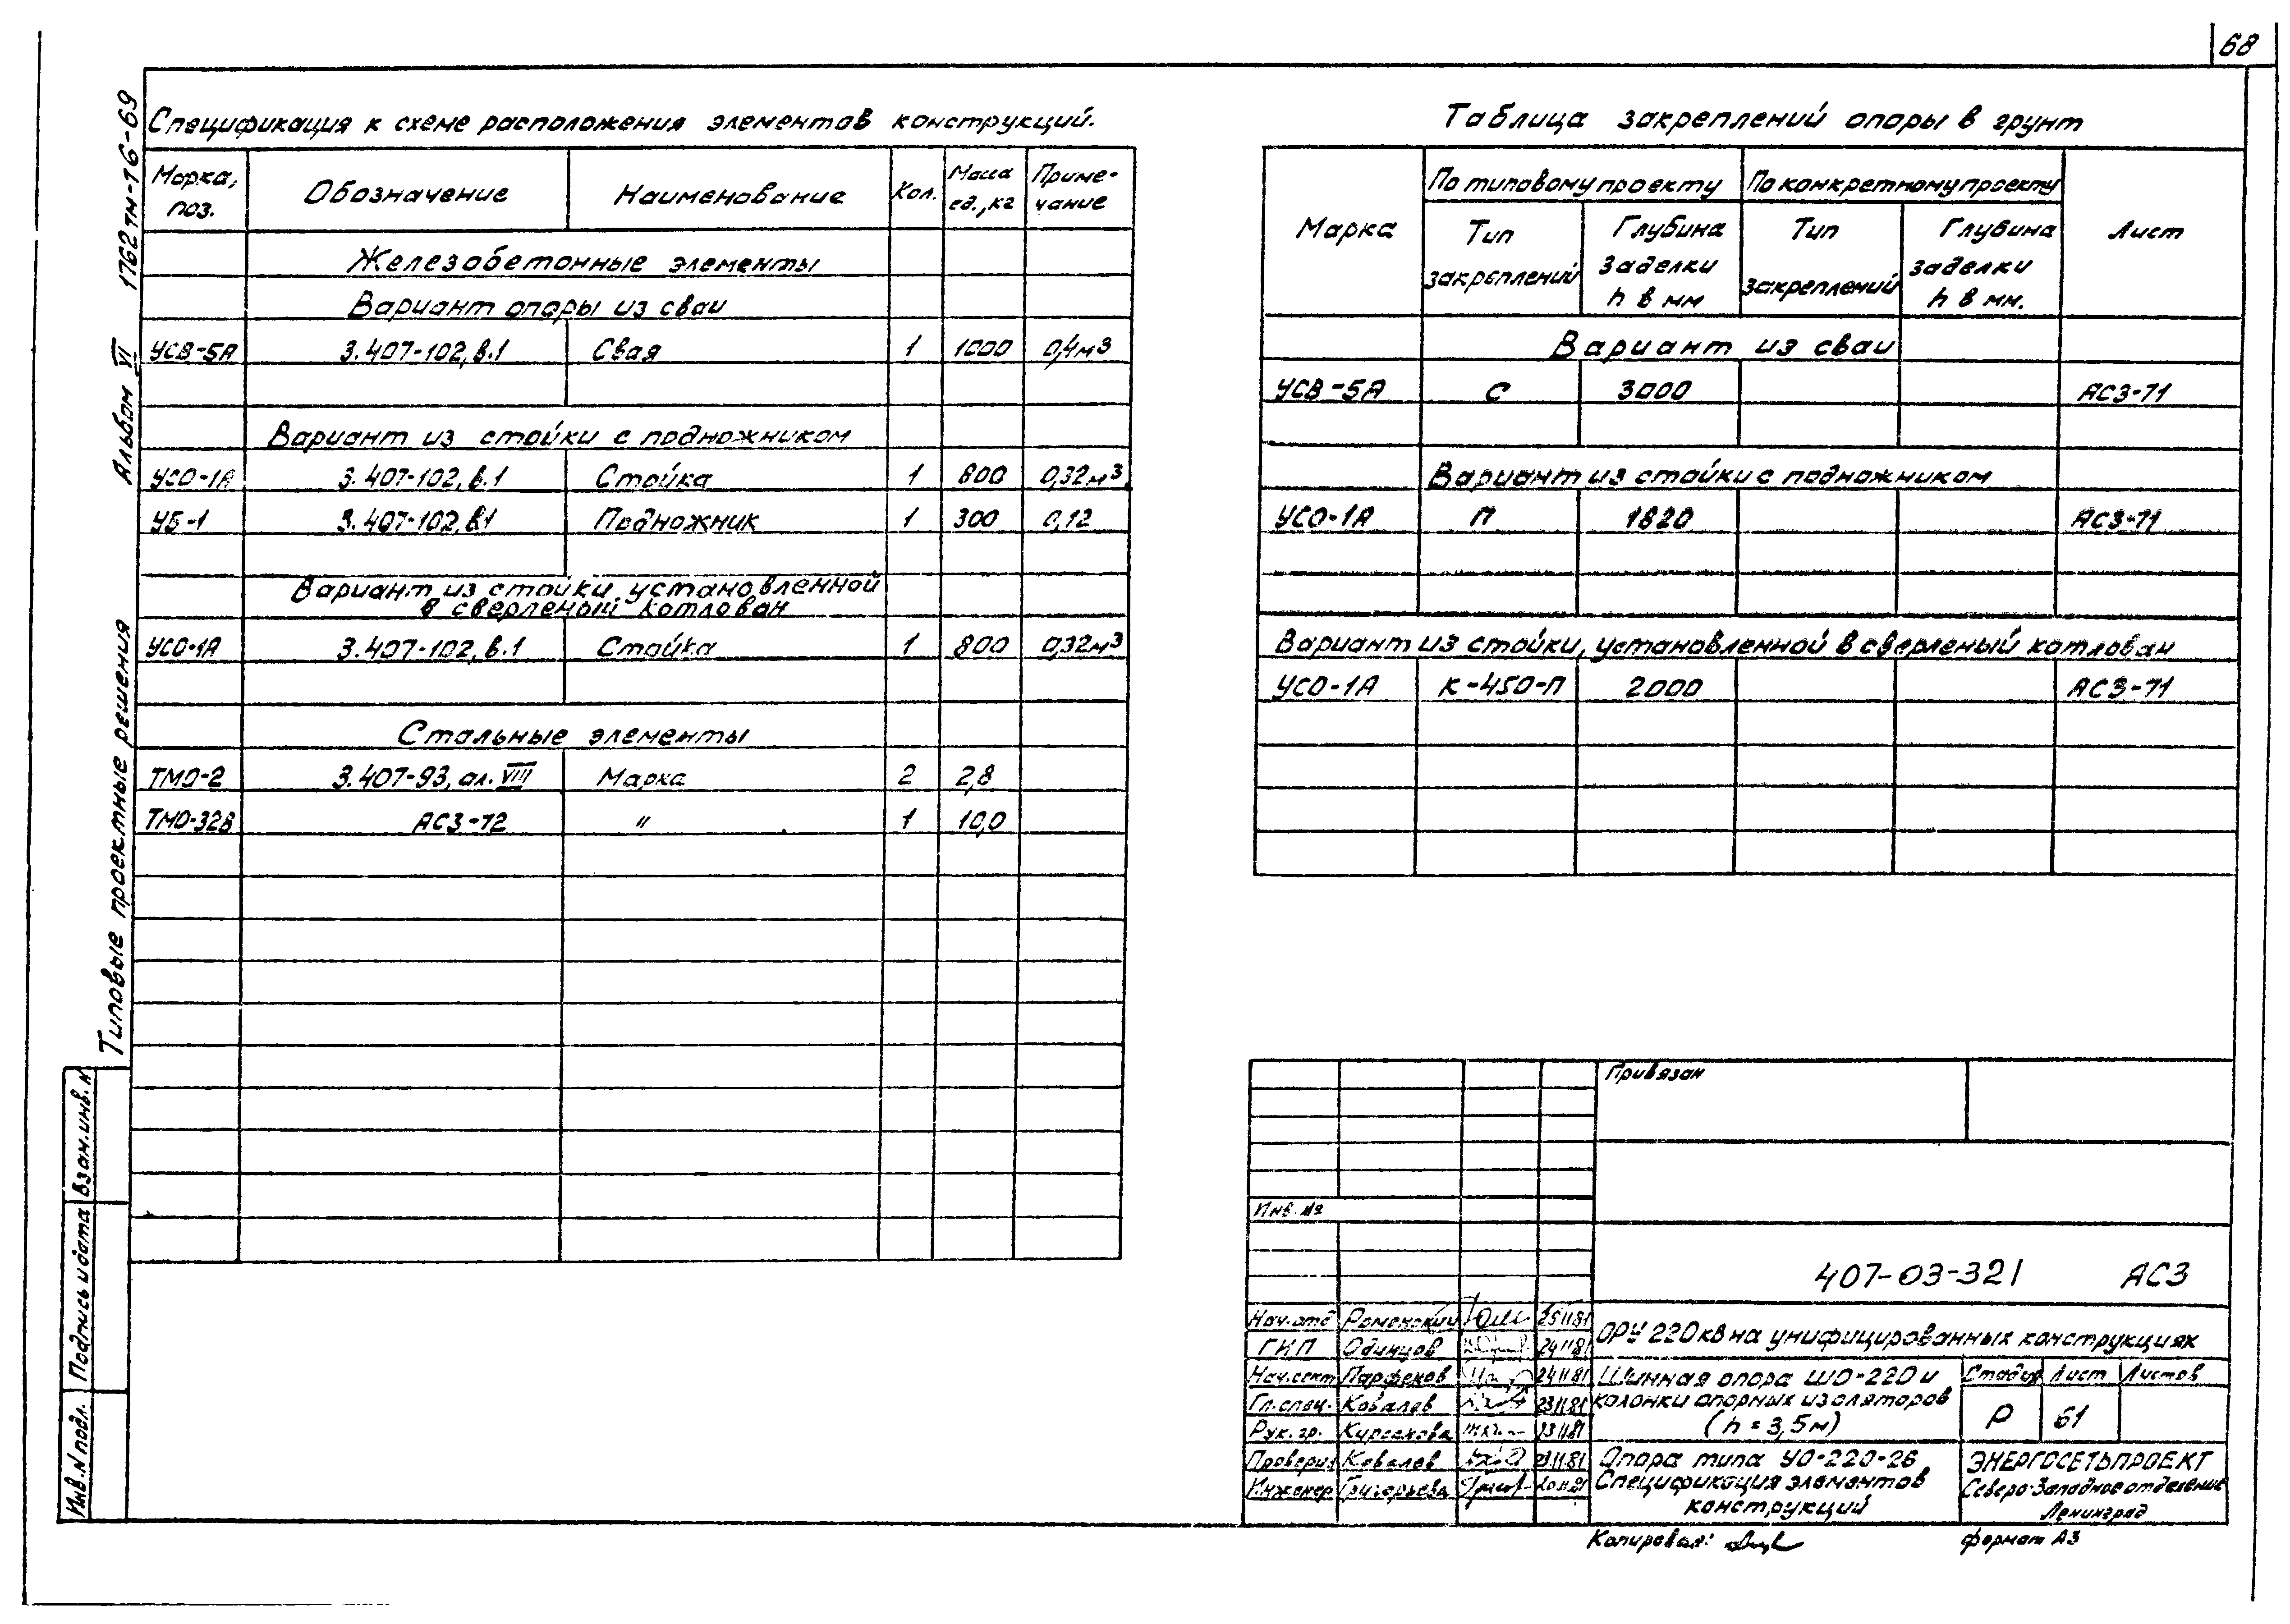 68
Спецификация к схеме расположения элементов конструкций.
Марка, поз. Обозначение Наименование Кол. Масса ед., кг Приме-чание
Железобетонные элементы
Вариант опоры из сваи
УСВ-5А 3.407-102, в.1 Свая 1 1000 0,4м³
Вариант из стойки с подножником
УСО-1А 3.407-102, в.1 Стойка 1 800 0,32м³
УБ-1 3.407-102, в1 Подножник 1 300 0,12
Вариант из стойки установленной
в сверленый котлован
УСО-1А 3.407-102, в.1 Стойка 1 800 0,32м³
Стальные элементы
ТМО-2 3.407-93, ал. VIII Марка 2 2,8
ТМО-32В АС3-72 " 1 10,0
Таблица закреплений опоры в грунт
Марка По типовому проекту По конкретному проекту Лист
Тип закреплений Глубина заделки h в мм Тип закреплений Глубина заделки h в мм.
Вариант из сваи
УСВ-5А С 3000 АС3-71
Вариант из стойки с подножником
УСО-1А П 1820 АС3-71
Вариант из стойки, установленной в сверленый котлован
УСО-1А К-450-П 2000 АС3-71
Типовые проектные решения Альбом VI 1762тм-т6-69
Взам.инв.N
Подпись и дата
Инв.N подл.
Привязан
Инв. №
407-03-321 АС3
Нач.отд Роменский 25.11.81
ГИП Одинцов 24.11.81
Нач.сект Парфенов 24.11.81
Гл.спец. Ковалев 23.11.81
Рук.гр. Курсакова 23.11.81
Проверил Ковалев 23.11.81
Инженер Григорьева 20.11.81
ОРУ 220кв на унифицированных конструкциях
Шинная опора ШО-220 и
колонки опорных изоляторов
(h = 3,5м)
Стадия Лист Листов
Р 61
Опора типа УО-220-26
Спецификация элементов
конструкций
ЭНЕРГОСЕТЬПРОЕКТ
Северо-Западное отделение
Ленинград
Копировал:
формат А3